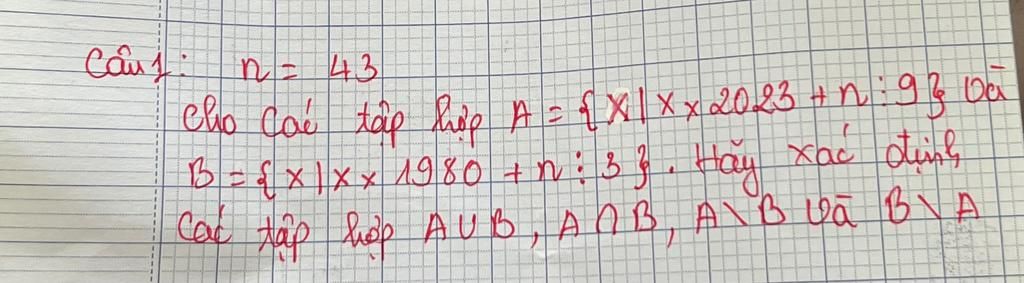 Câu 1: n = 43
Cho các tập hợp A = {x | x × 2023 + n ⋮ 9} và
B = {x | x × 1980 + n ⋮ 3}. Hãy xác định
Các tập hợp A ∪ B, A ∩ B, A \ B và B \ A